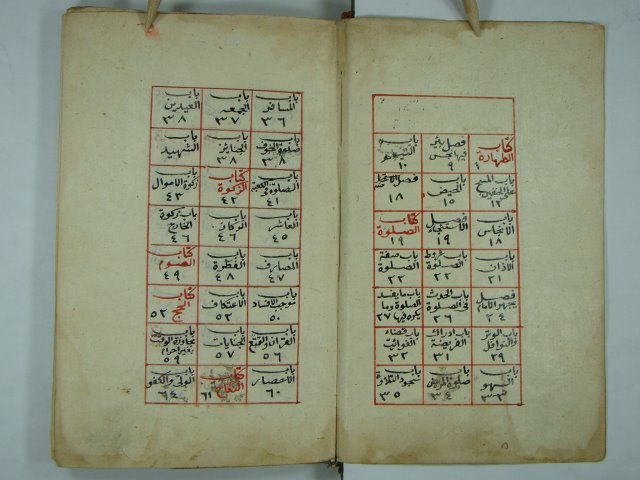 كتاب الطهارة ١
فصل بئر فيها نجس ٩
باب التيمم ١٠
باب المسح على الخفين ١٣
باب الحيض ١٥
١٨
باب الانجاس ١٨
فصل الاستنجاء ١٩
كتاب الصلوة ١٩
باب الاذان ٢١
باب شروط الصلوة ٢٢
باب صفة الصلوة ٢٢
فصل يجهر الامام ٢٤
باب الحدث فى الصلوة ٢٦
باب ما يفسد الصلوة وما يكره فيها ٢٧
باب الوتر والنوافل ٢٩
باب ادراك الفريضة ٣١
باب قضاء الفوائت ٣٢
باب السهو ٣٣
باب صلوة المريض ٣٤
باب سجود التلاوة ٣٥
باب المسافر ٣٦
باب الجمعه ٣٧
باب العيدين ٣٨
باب صلوة الخوف ٣٨
باب الجنائز ٣٨
باب الشهيد
باب الصلوة فى الكعبة ٤١
كتاب الزكوة ٤٢
باب زكوة الاموال ٤٣
باب العاشر ٤٥
باب الركاز ٤٦
باب زكوة الخارج ٤٦
باب المصارف ٤٧
باب الفطرة ٤٨
كتاب الصوم ٤٩
باب موجب الافساد ٥٠
باب الاعتكاف ٥٢
كتاب الحج ٥٢
باب القران والتمتع ٥٦
باب الجنايات ٥٧
باب مجاوزة الوقت بغير احرام ٥٩
باب الاحصار ٦٠
كتاب النكاح ٦١
باب الولى والكفو ٦٤